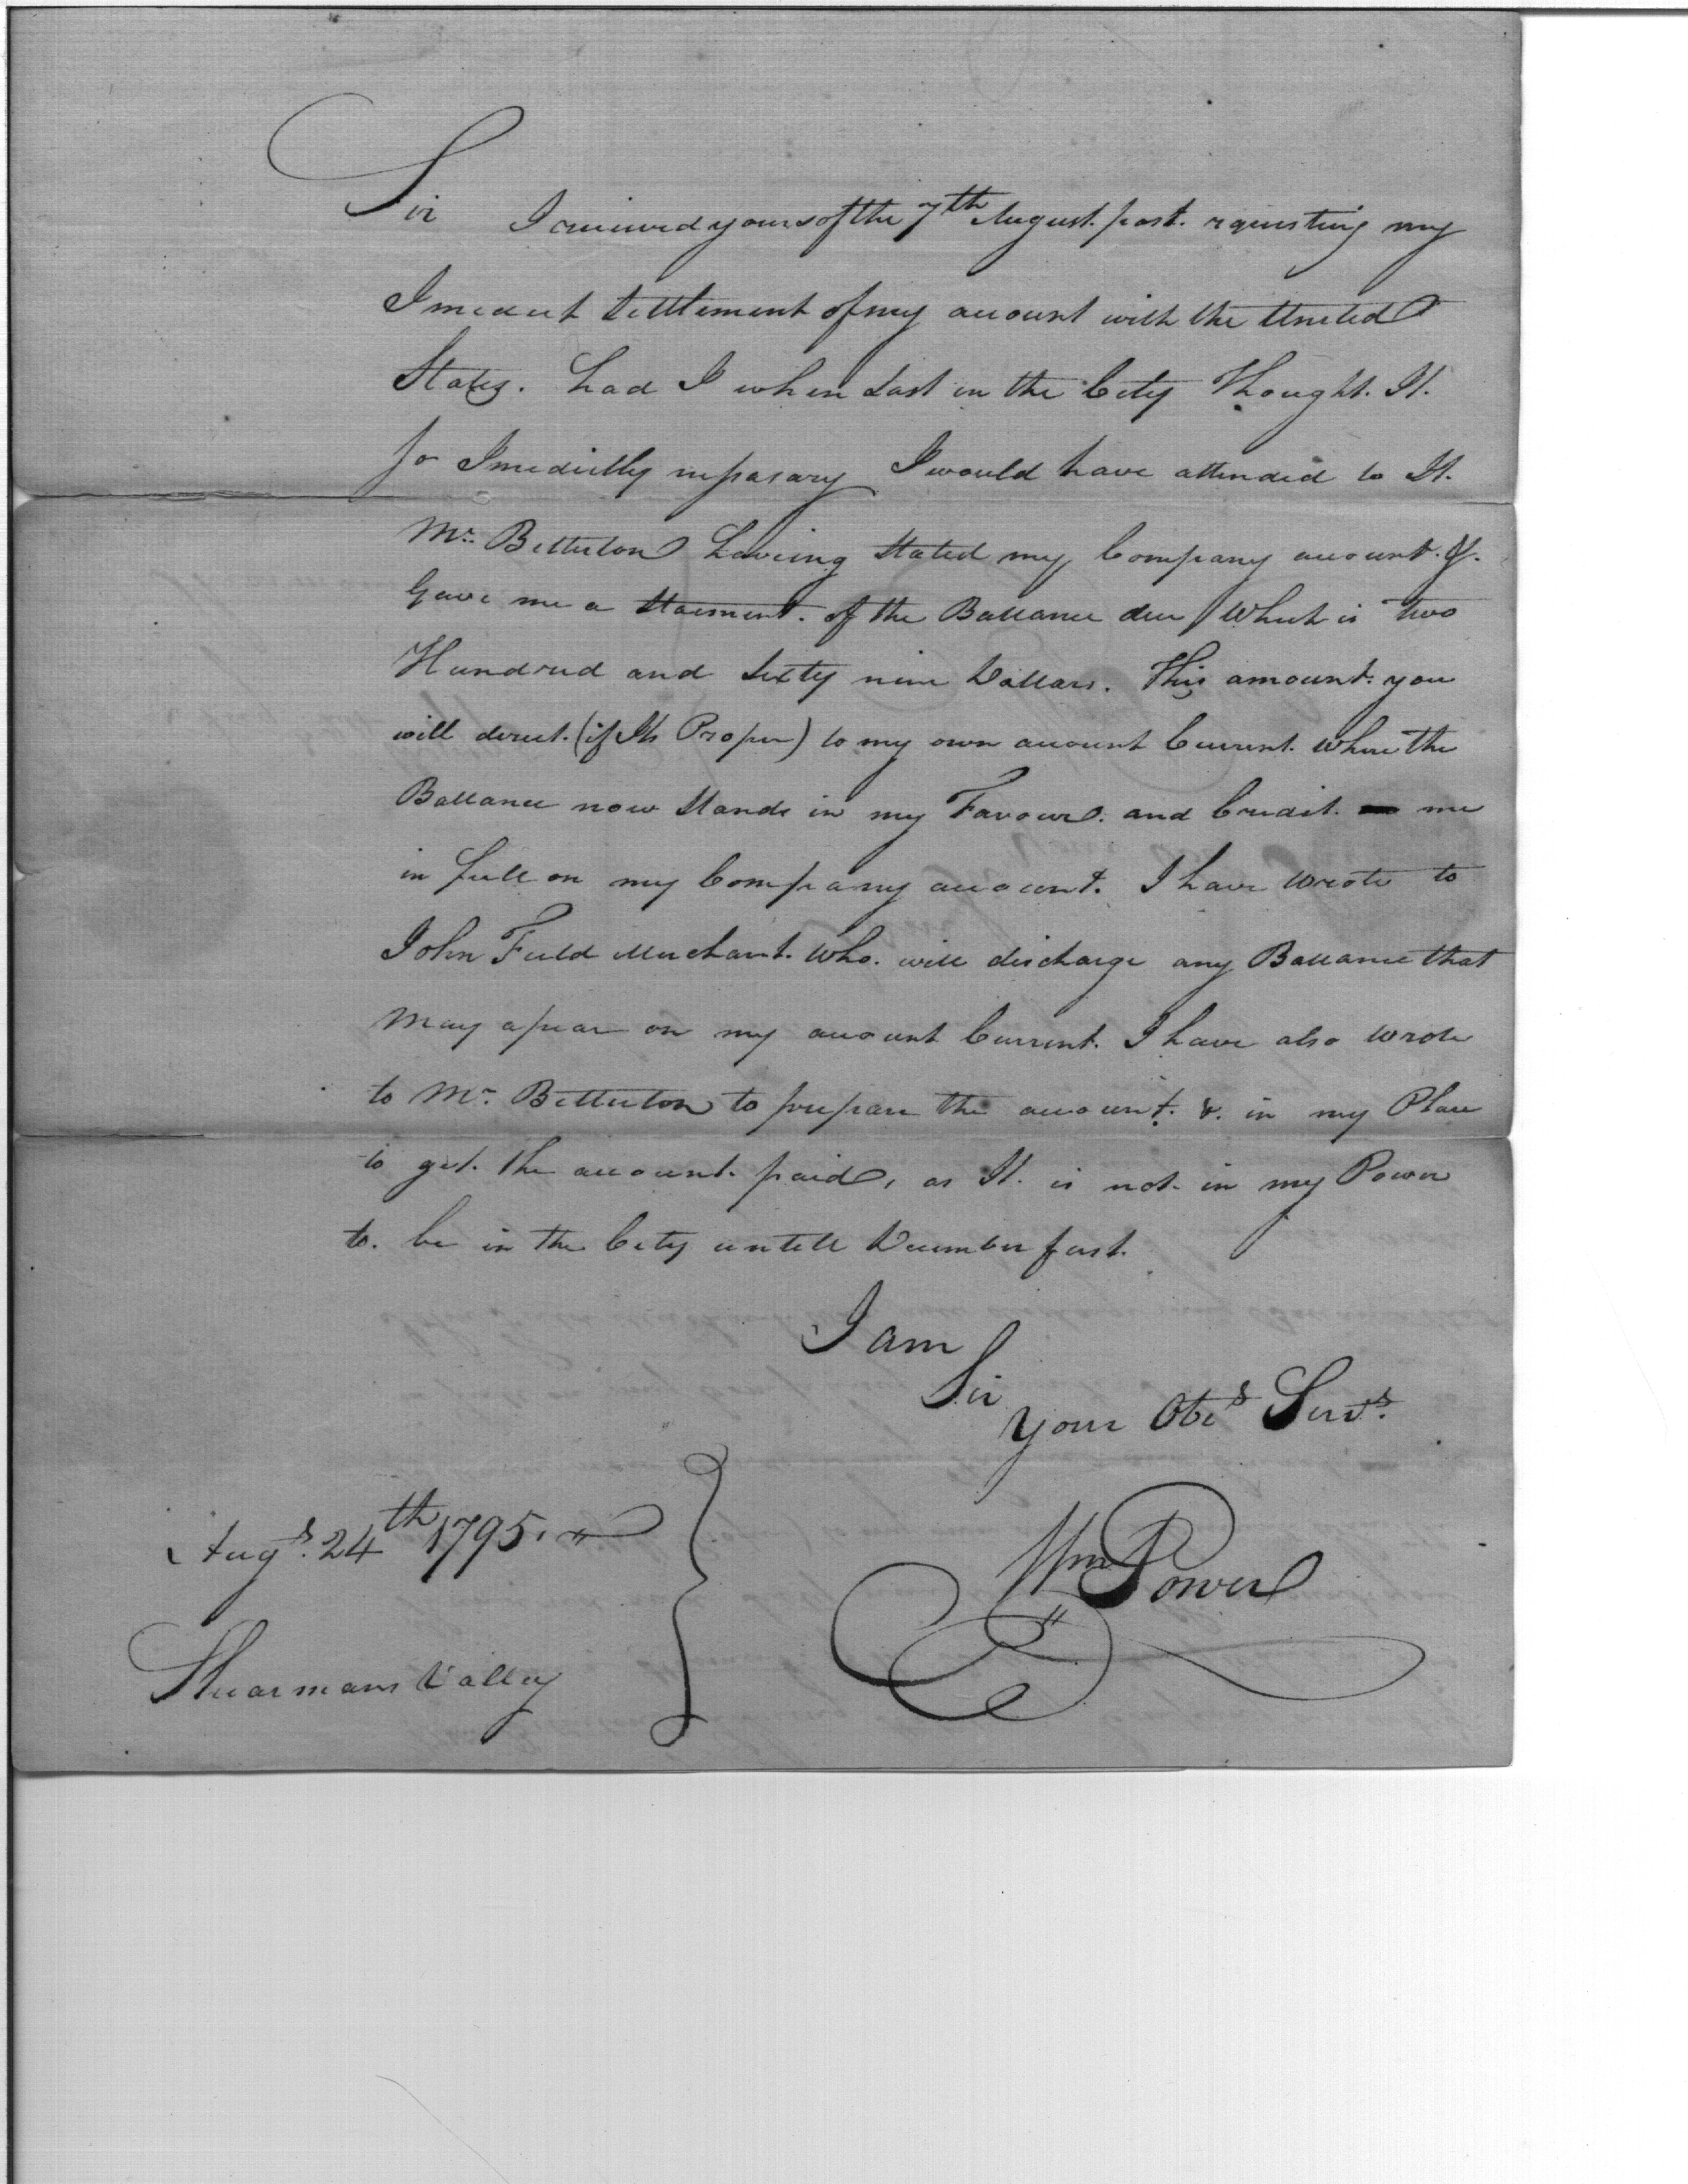 Sir I received yours of the 7th August. past. requesting my
Imediat Settlement of my account with the United
States. had I when Last in the City Thought. It.
so Imediettly nessasary I would have attended to It.
Mr. Betterton haveing Stated my Company account. &.
Gave me a Staement. of the Ballance due / Which is Two
Hundred and Sixty nine Dollars. This amount. you
will derect. (if Its Proper) to my own account Current. where the
Ballance now Stands in my Favour. and Credit. me
in full on my Company account. I have wrote to
John Field Merchant. who. will discharge any Ballance that
May apear on my account Current. I have also wrote
to Mr. Betterton to prepare the account. &. in my Place
to get. the account. paid, as It. is not. in my Power
to. be in the City untill December first.
I am
Sir
your Obt Servt.
Augt. 24th 1795.
Wm Power
Shearmans Valley